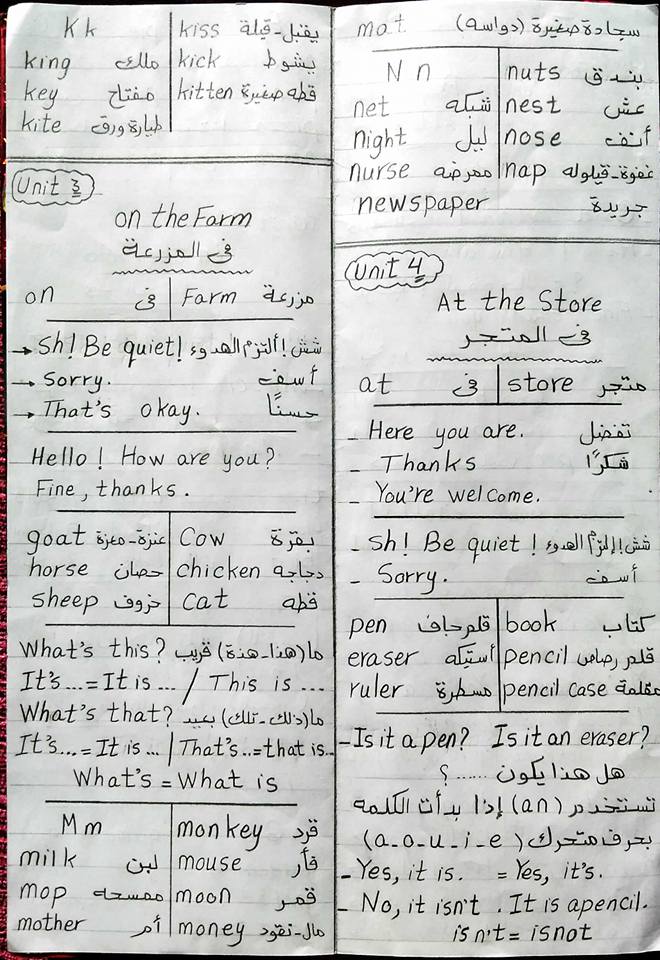 K k
kiss يقبل - قبلة
king ملك
kick يشوط
key مفتاح
kitten قطه صغيرة
kite طيارة ورق
Unit 3
on the Farm
فى المزرعة
on فى
Farm مزرعة
→ Sh! Be quiet! شش! ألتزم الهدوء
→ Sorry. أسف
→ That's okay. حسنًا
Hello! How are you?
Fine, thanks.
goat عنزة - معزة
Cow بقرة
horse حصان
chicken دجاجه
sheep خروف
cat قطه
What's this? ما (هذا - هذة) قريب
It's... = It is ... / This is ...
What's that? ما (ذلك - تلك) بعيد
It's... = It is ... / That's.. = that is..
What's = What is
M m
monkey قرد
milk لبن
mouse فأر
mop ممسحه
moon قمر
mother أم
money مال - نقود
mat سجادة صغيرة (دواسه)
N n
nuts بندق
net شبكه
nest عش
night ليل
nose أنف
nurse ممرضه
nap غفوة - قيلوله
newspaper جريدة
Unit 4
At the Store
فى المتجر
at فى
store متجر
- Here you are. تفضل
- Thanks شكرًا
- You're welcome.
- Sh! Be quiet! شش! إلزم الهدوء
- Sorry. أسف
pen قلم جاف
book كتاب
eraser أستيكه
pencil قلم رصاص
ruler مسطرة
pencil case مقلمة
- Is it a pen? Is it an eraser?
هل هذا يكون ...... ؟
تستخدم (an) إذا بدأت الكلمه
بحرف متحرك (a - o - u - i - e)
- Yes, it is. = Yes, it's.
- No, it isn't. It is apencil.
isn't = isnot